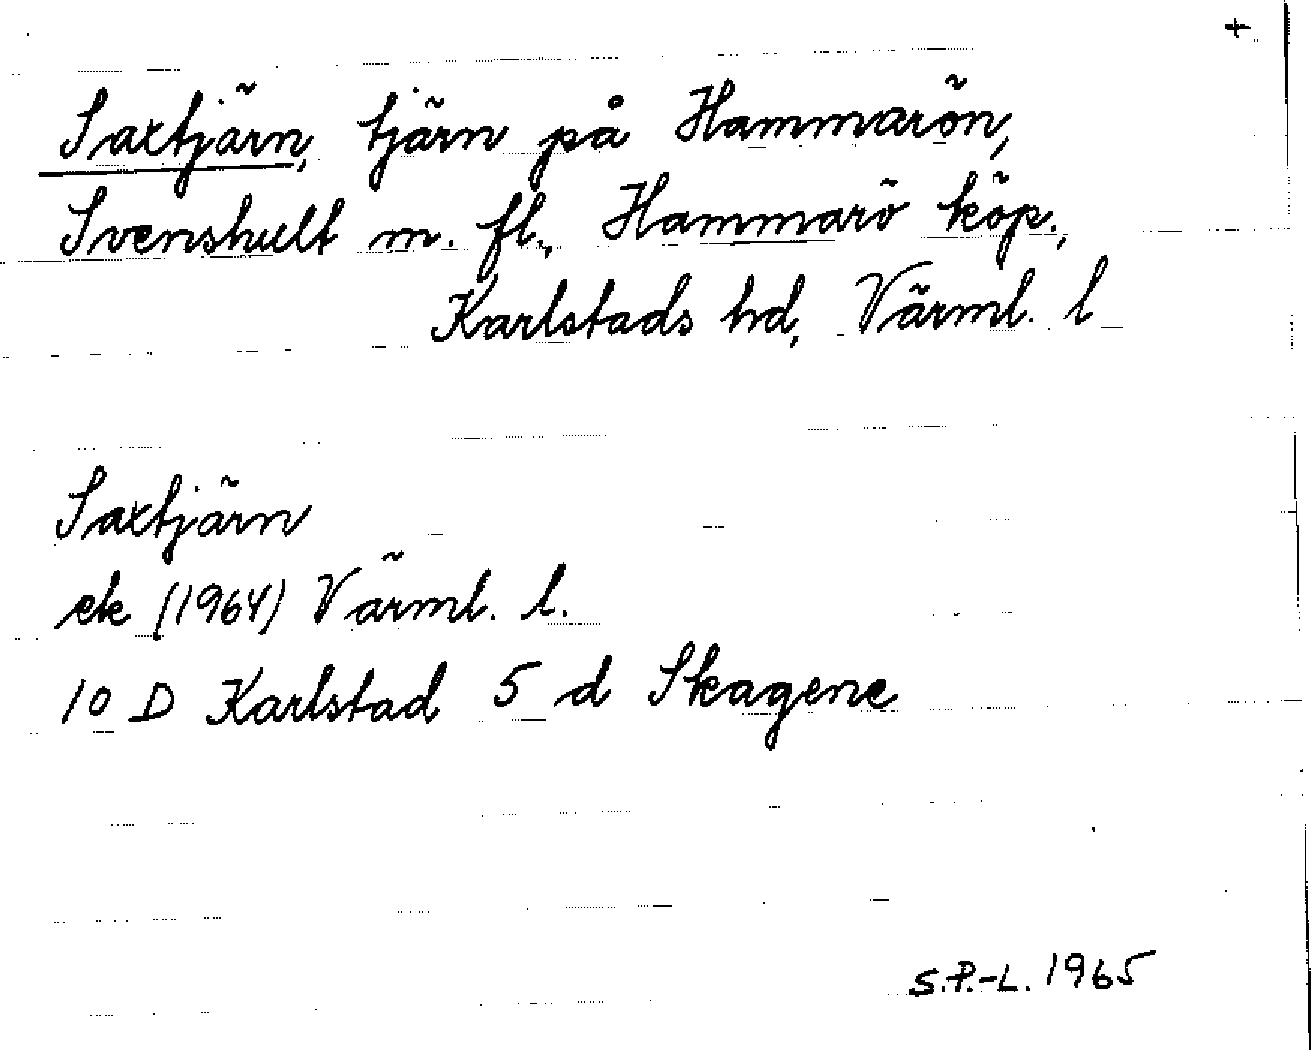 +
Saxtjärn, tjärn på Hammarön,
Svenshult m. fl., Hammarö köp.,
Karlstads hd, Värml. l
Saxtjärn
ek (1964) Värml. l.
10 D Karlstad 5 d Skagene
S.P.-L. 1965